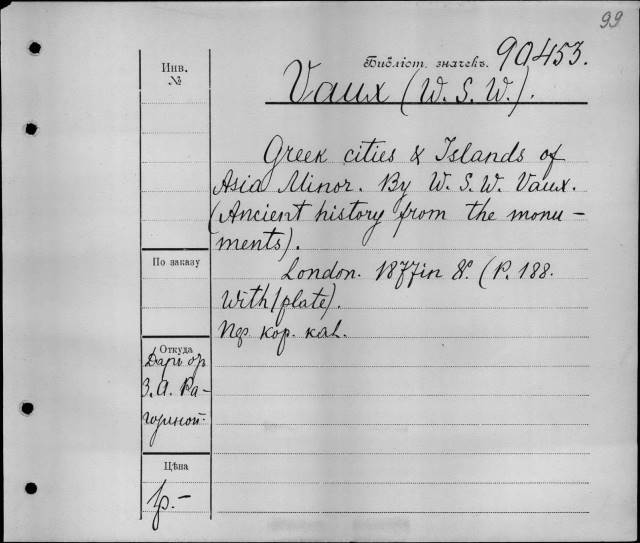 99
Инв.
№
Библіот. значекъ. 90453.
Vaux (W. S. W.).
Greek cities & Islands of
Asia Minor. By W. S. W. Vaux.
(Ancient history from the monu-
ments).
По заказу
London. 1877 in 8º. (P. 188.
With 1 plate).
кор. кal.
Откуда
Даръ
З. А. Ра-
гозиной.
Цѣна
р.-